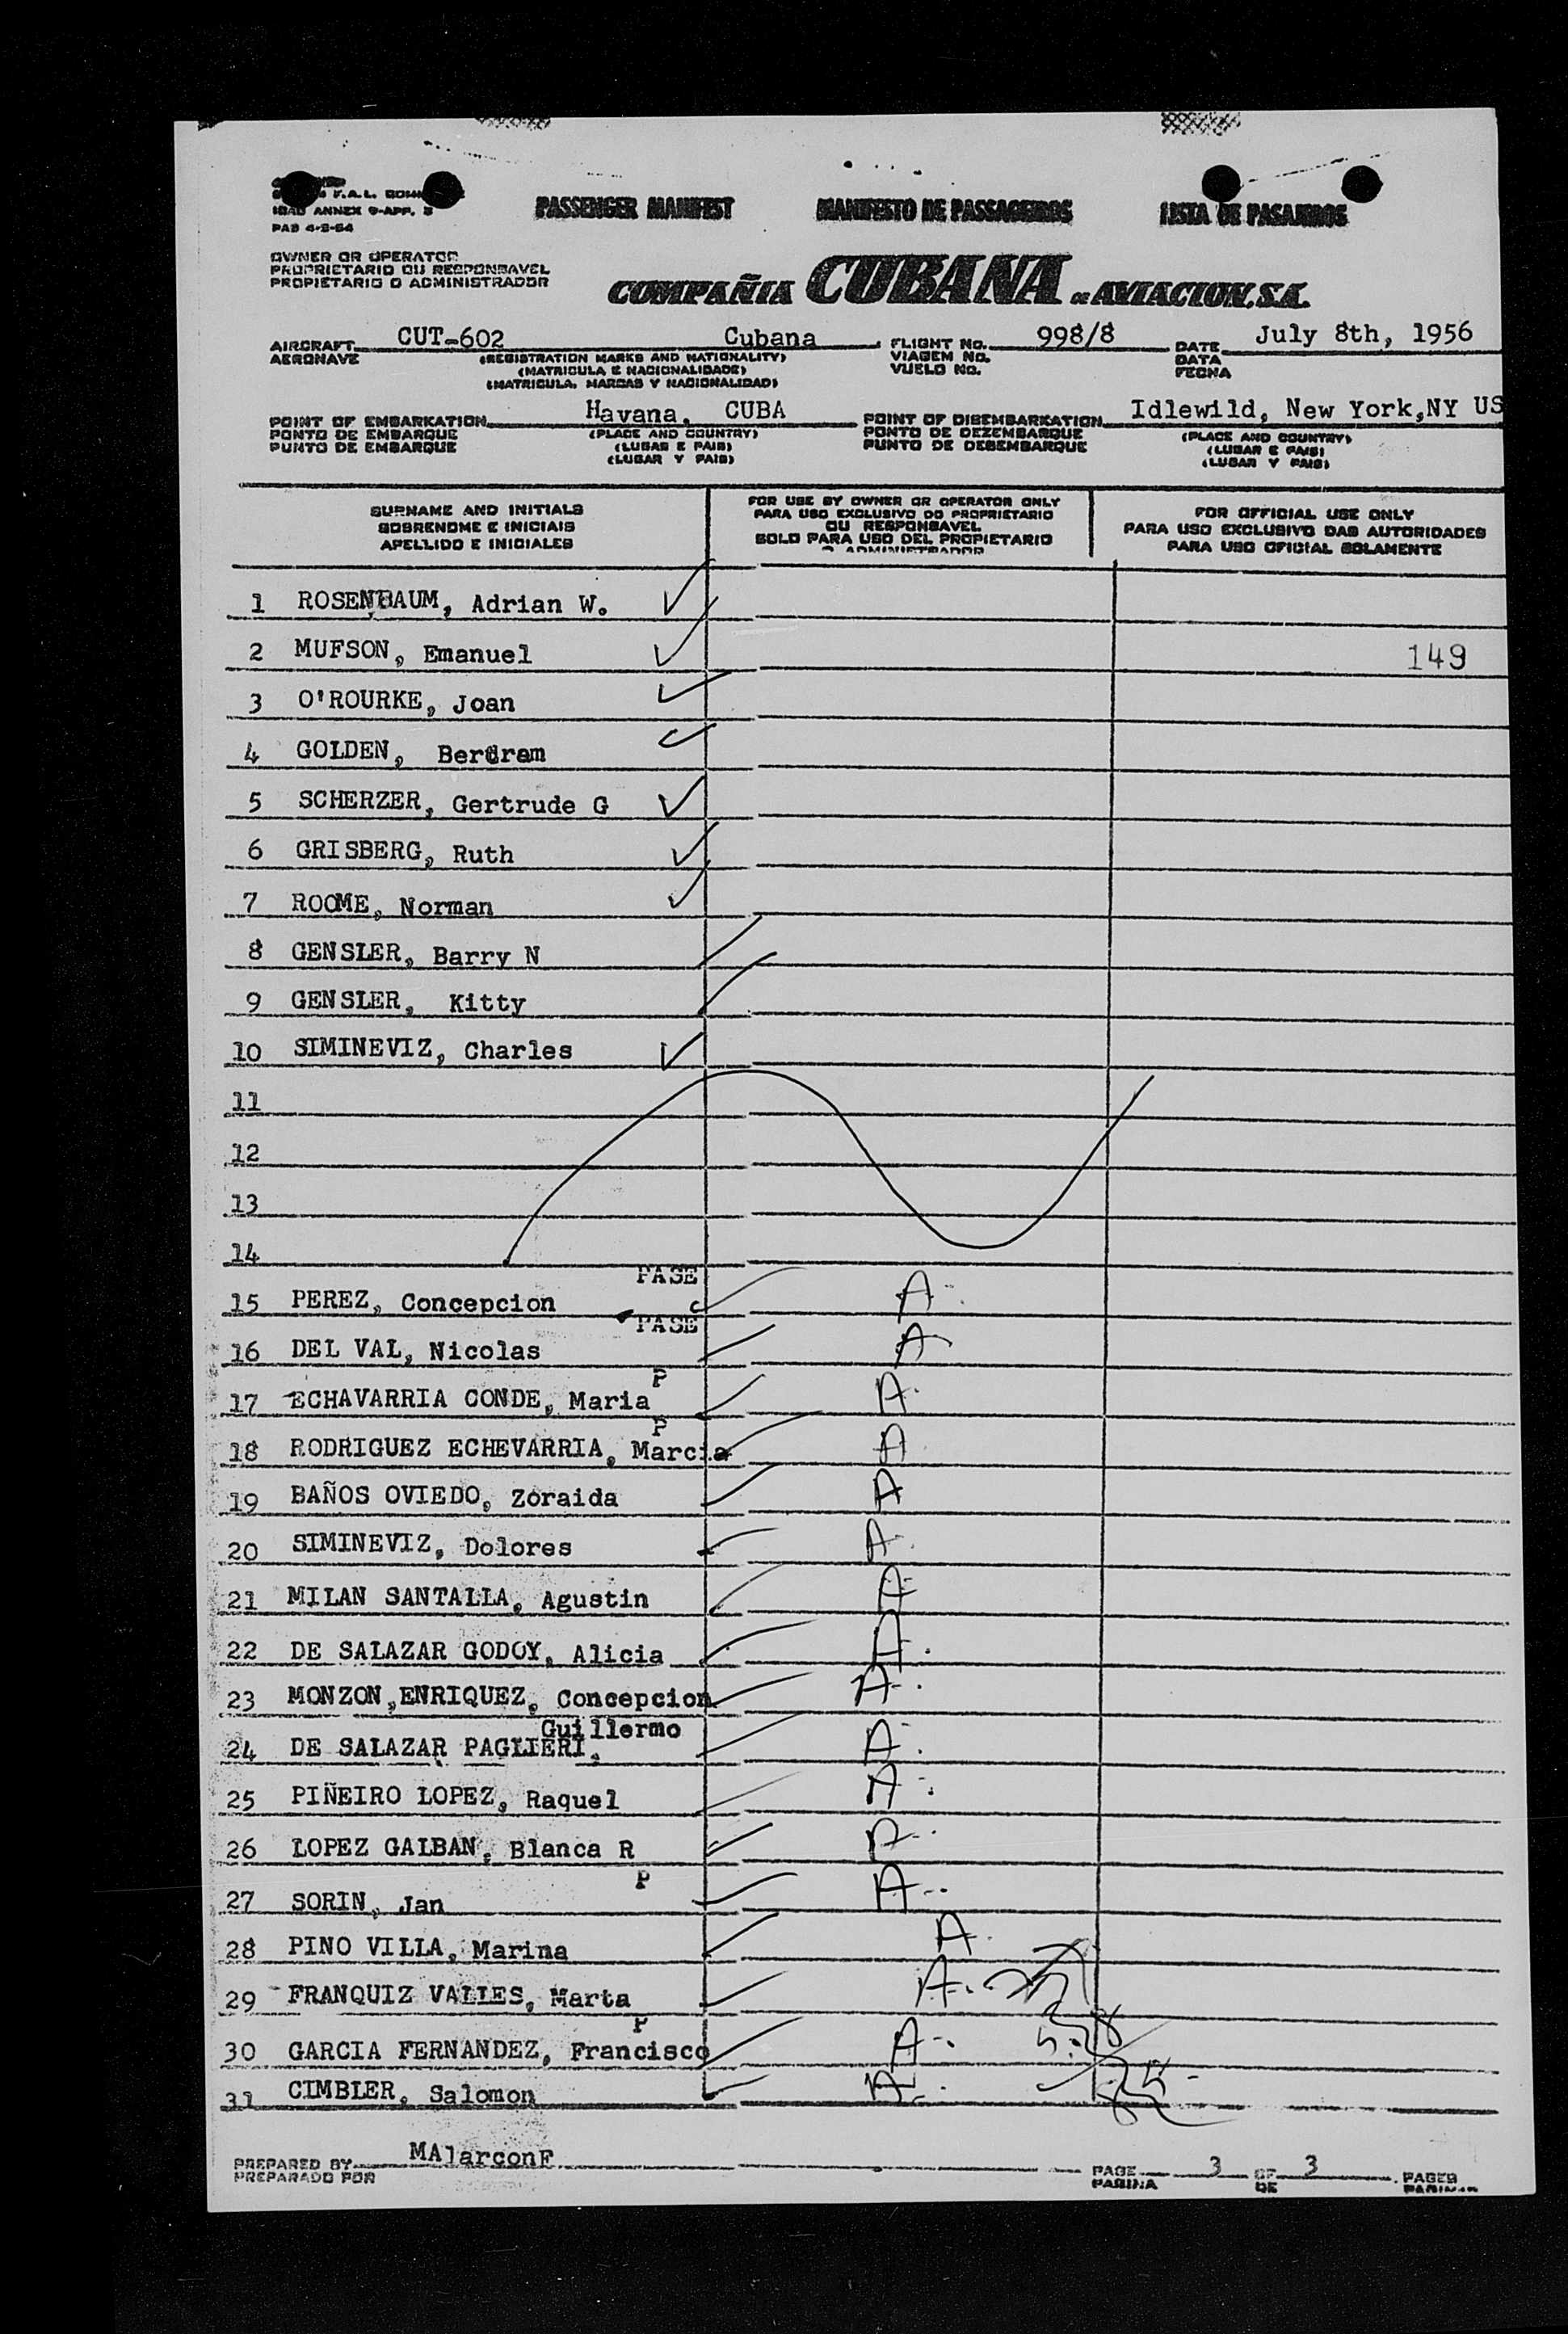 F.A.L.
ICAO ANNEX 9-APP. 3
PAS 4-2-54
PASSENGER MANIFEST MANIFESTO DE PASSAGEIROS LISTA DE PASAJEROS
OWNER OR OPERATOR
PROPRIETARIO OU RESPONSAVEL
PROPIETARIO O ADMINISTRADOR
COMPAÑIA CUBANA DE AVIACION, S.A.
AIRCRAFT CUT-602 Cubana FLIGHT NO. 998/8 DATE July 8th, 1956
AERONAVE (REGISTRATION MARKS AND NATIONALITY) VIAGEM NO. DATA
(MATRICULA E NACIONALIDADE) VUELO NO. FECHA
(MATRICULA, MARCAS Y NACIONALIDAD)
POINT OF EMBARKATION Havana, CUBA POINT OF DISEMBARKATION Idlewild, New York,NY US
PONTO DE EMBARQUE (PLACE AND COUNTRY) PONTO DE DEZEMBARQUE (PLACE AND COUNTRY)
PUNTO DE EMBARQUE (LUGAR E PAIS) PUNTO DE DESEMBARQUE (LUGAR E PAIS)
(LUGAR Y PAIS) (LUGAR Y PAIS)
SURNAME AND INITIALS
SOBRENOME E INICIAIS
APELLIDO E INICIALES
FOR USE BY OWNER OR OPERATOR ONLY
PARA USO EXCLUSIVO DO PROPRIETARIO
OU RESPONSAVEL
SOLO PARA USO DEL PROPIETARIO
O ADMINISTRADOR
FOR OFFICIAL USE ONLY
PARA USO EXCLUSIVO DAS AUTORIDADES
PARA USO OFICIAL SOLAMENTE
1 ROSENBAUM, Adrian W.
2 MUFSON, Emanuel 149
3 O'ROURKE, Joan
4 GOLDEN, Bertram
5 SCHERZER, Gertrude G
6 GRISBERG, Ruth
7 ROOME, Norman
8 GENSLER, Barry N
9 GENSLER, Kitty
10 SIMINEVIZ, Charles
11
12
13
14
PASE
15 PEREZ, Concepcion A
PASE
16 DEL VAL, Nicolas A
P
17 ECHAVARRIA CONDE, Maria A
P
18 RODRIGUEZ ECHEVARRIA, Marcia A
19 BAÑOS OVIEDO, Zoraida A
20 SIMINEVIZ, Dolores A
21 MILAN SANTALLA, Agustin A
22 DE SALAZAR GODOY, Alicia A
23 MONZON,ENRIQUEZ, Concepcion A
Guillermo
24 DE SALAZAR PAGLIERI, A
25 PIÑEIRO LOPEZ, Raquel A
26 LOPEZ GALBAN, Blanca R A
P
27 SORIN, Jan A
28 PINO VILLA, Marina A
29 FRANQUIZ VALLES, Marta A
P
30 GARCIA FERNANDEZ, Francisco A
31 CIMBLER, Salomon A
PREPARED BY MAlarconF
PREPARADO POR
PAGE 3 OF 3 PAGES
PAGINA DE PAGINAS